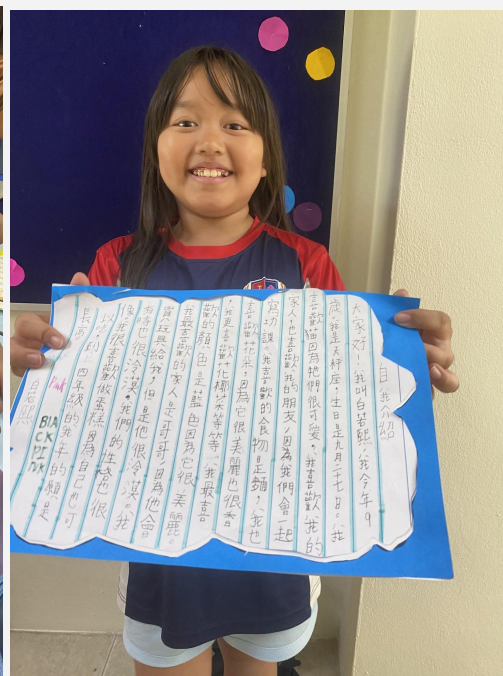 自我介紹
大家好!我叫白若熙,我今年9
歲,我是天秤座,生日是九月二十七日。我
喜歡貓因為牠們很可愛。我喜歡我的
家人,也喜歡我的朋友,因為我們會一起
寫功課。我喜歡的食物是麵,我也
喜歡花朵,因為它很美麗也很香
,我更喜歡花椰菜等等,我最喜
歡的顏色是藍色因為它很美麗。
我最喜歡的家人是哥哥,因為他會
買玩具給我,但是他很冷漠。我
像我很冷漠。我們的性格也很
我很喜歡做蛋糕,因為自己也可
以吃到,四年級的我,今年的願是
長高
白若熙
Pink
BLA
CK PI
NK